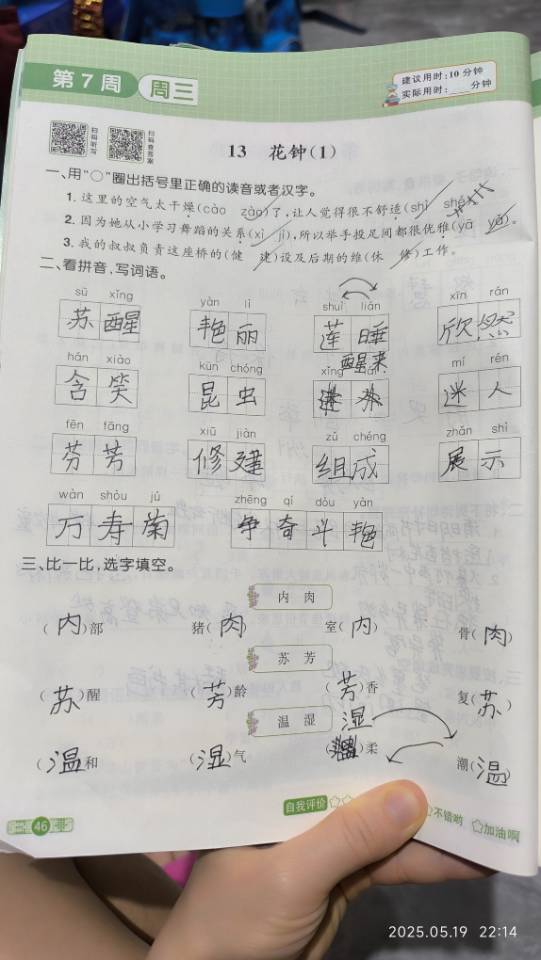 第7周 周三
建议用时:10分钟
实际用时:____分钟
扫码听写 扫码查答案
13 花钟(1)
一、用“○”圈出括号里正确的读音或者汉字。
1. 这里的空气太干燥(cào zào)了,让人觉得很不舒适(shì shé)。
2. 因为她从小学习舞蹈的关系(xì jì),所以举手投足间都很优雅(yā yǎ)。
3. 我的叔叔负责这座桥的(健 建)设及后期的维(休 修)工作。
二、看拼音,写词语。
sū xǐng yàn lì shuì lián xīn rán
苏醒 艳丽 莲睡 欣然
醒来
hán xiào kūn chóng xǐng lái mí rén
含笑 昆虫 迷人
fēn fāng xiū jiàn zǔ chéng zhǎn shì
芬芳 修建 组成 展示
wàn shòu jú zhēng qí dòu yàn
万寿菊 争奇斗艳
三、比一比,选字填空。
内 肉
(内)部 猪(肉) 室(内) 骨(肉)
苏 芳
(苏)醒 (芳)龄 (芳)香 复(苏)
温 湿
湿
(温)和 (湿)气 ( )柔 潮(温)
自我评价 不错哟 加油啊
46
2025.05.19 22:14